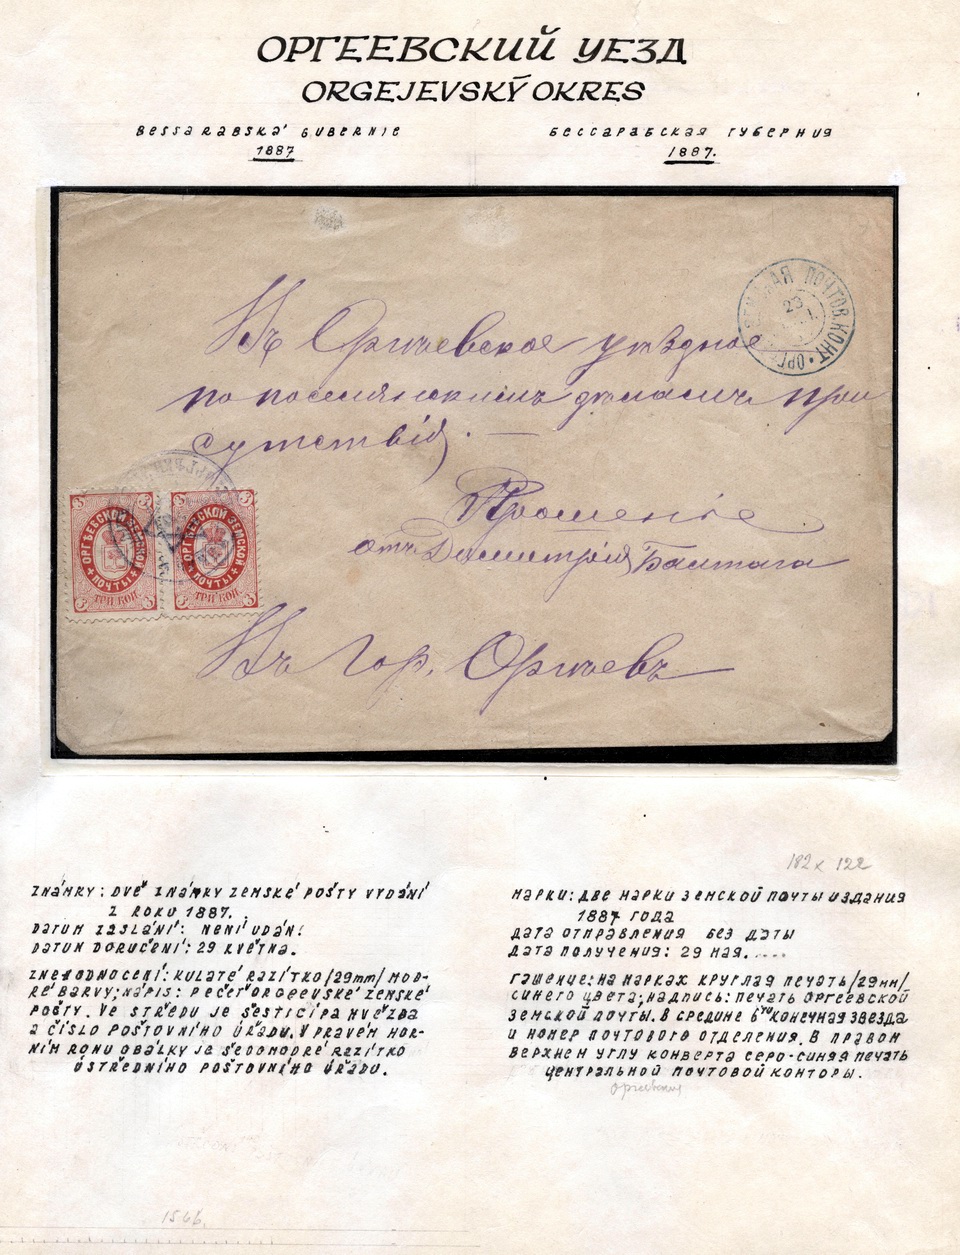 ОРГЕЕВСКИЙ УЕЗД
ORGEJEVSKÝ OKRES
BESSARABSKÁ GUBERNIE
1887
БЕССАРАБСКАЯ ГУБЕРНИЯ
1887.
ПОЧТОВ. КОНТ. ОРГ
23
Въ Оргѣевское уѣздное
по поселянскимъ дѣламъ при
сутствій. —
Прошеніе
отъ Димитрія Балтага
ОРГѢЕВСКОЙ ЗЕМСКОЙ
ПОЧТЫ
ТРИ КОП.
3 3 3 3
ОРГѢЕВСКОЙ ЗЕМСКОЙ
ПОЧТЫ
ТРИ КОП.
3 3 3 3
Въ Гор. Оргѣевъ
182 x 122
ZNÁMKY: DVĚ ZNÁMKY ZEMSKÉ POŠTY VYDÁNÍ
Z ROKU 1887.
DATUM ZASLÁNÍ: NENÍ UDÁN!
DATUM DORUČENÍ: 29 KVĚTNA.
ZNEHODNOCENÍ: KULATÉ RAZÍTKO/29mm/MOD-
RÉ BARVY; NÁPIS: PEČEŤ ORGEEVSKÉ ZEMSKÉ
POŠTY. VE STŘEDU JE ŠESTICÍPÁ HVĚZDA
A ČÍSLO POŠTOVNÍHO ÚŘADU. V PRAVÉM HOR-
NÍM ROHU OBÁLKY JE ŠEDOMODRÉ RAZÍTKO
ÚSTŘEDNÍHO POŠTOVNÍHO ÚŘADU.
МАРКИ: ДВЕ МАРКИ ЗЕМСКОЙ ПОЧТЫ ИЗДАНИЯ
1887 ГОДА
ДАТА ОТПРАВЛЕНИЯ БЕЗ ДАТЫ
ДАТА ПОЛУЧЕНИЯ: 29 МАЯ.....
ГАШЕНИЕ: НА МАРКАХ КРУГЛАЯ ПЕЧАТЬ/29мм/
СИНЕГО ЦВЕТА; НАДПИСЬ: ПЕЧАТЬ ОРГЕЕВСКОЙ
ЗЕМСКОЙ ПОЧТЫ. В СРЕДИНЕ 6ТИ КОНЕЧНАЯ ЗВЕЗДА
И НОМЕР ПОЧТОВОГО ОТДЕЛЕНИЯ. В ПРАВОМ
ВЕРХНЕМ УГЛУ КОНВЕРТА СЕРО-СИНЯЯ ПЕЧАТЬ
ЦЕНТРАЛЬНОЙ ПОЧТОВОЙ КОНТОРЫ.
1566.